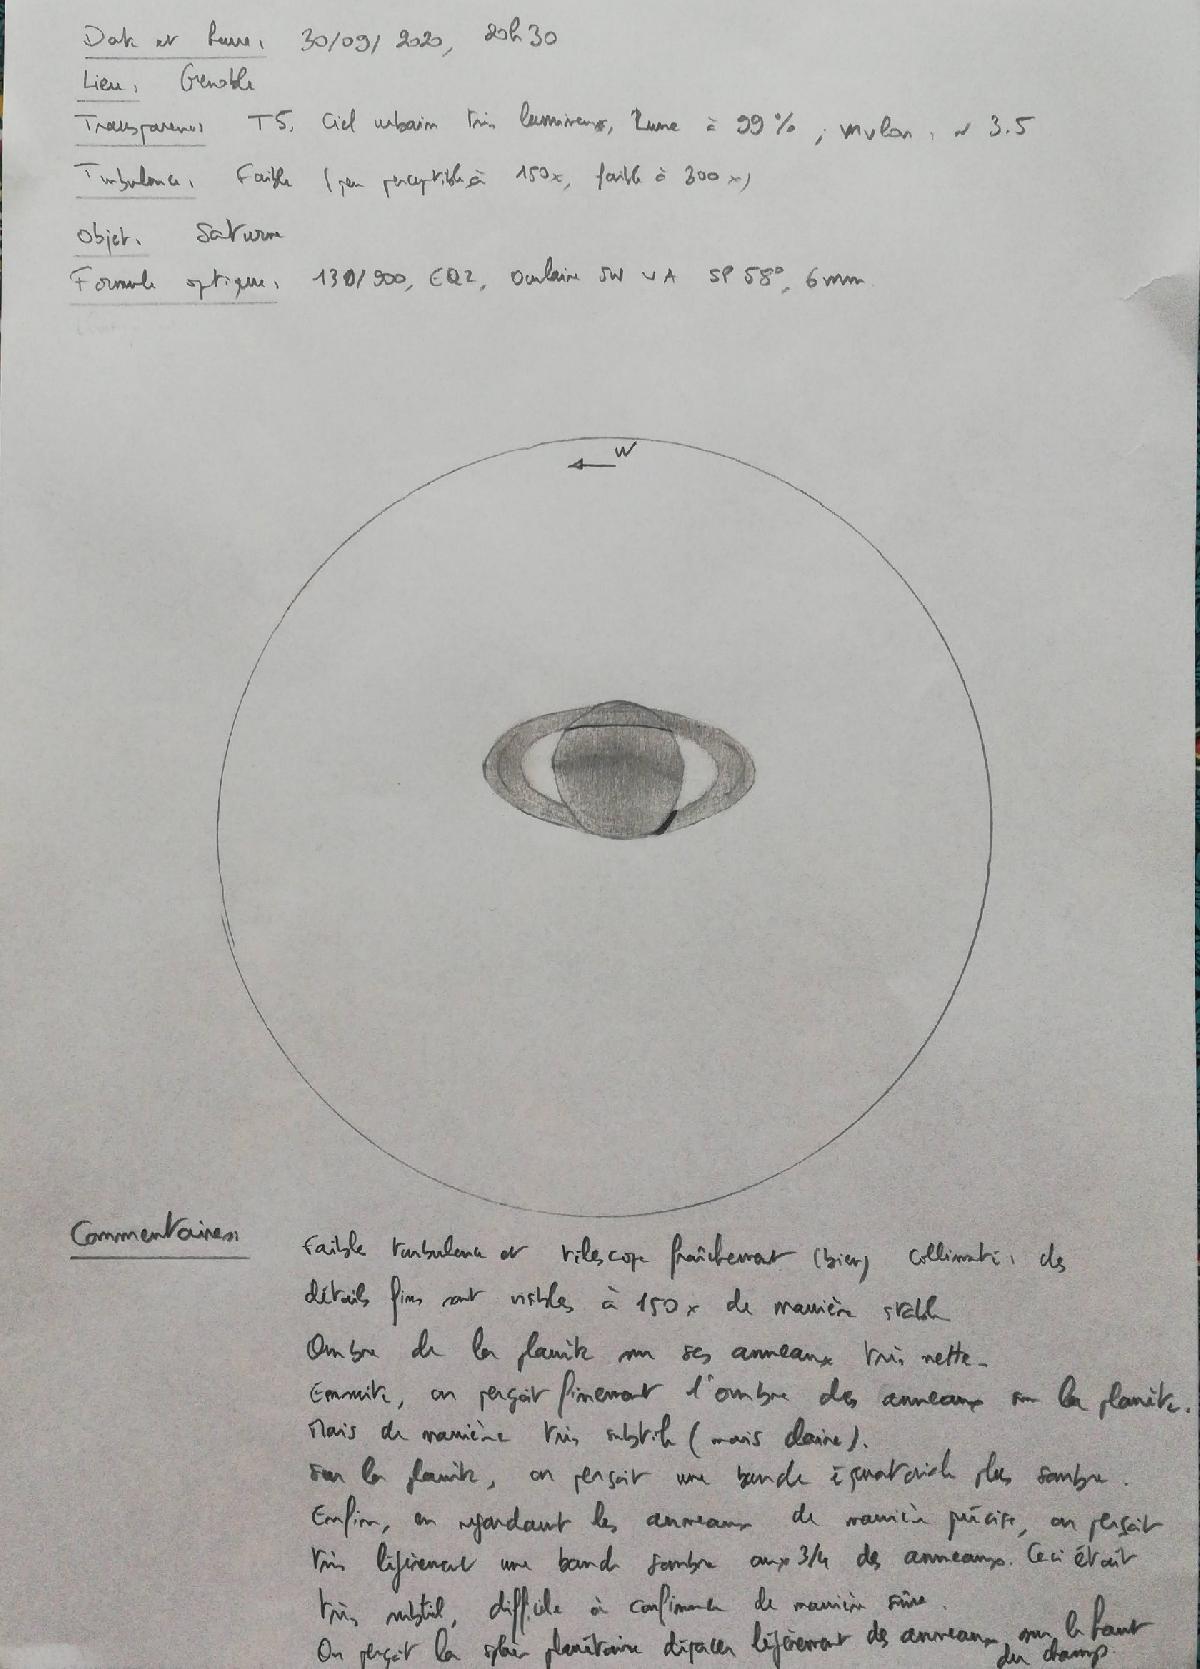 Date et heure: 30/09/2020, 20h30
Lieu: Grenoble
Transparence: T5, Ciel urbain très lumineux, Lune à 99%, mvlon: ~ 3.5
Turbulence: Faible (peu perceptible à 150x, faible à 300x)
Objet: Saturne
Formule optique: 130/900, EQ2, Oculaire SW UWA SP 58°, 6mm
W
Commentaires:
Faible turbulence et télescope fraîchement (bien) collimaté: des
détails fins sont visibles à 150x de manière stable
Ombre de la planète sur ses anneaux très nette.
Ensuite, on perçoit finement l'ombre des anneaux sur la planète.
Mais de manière très subtile (mais claire).
Sur la planète, on perçoit une bande équatoriale plus sombre.
Enfin, en regardant les anneaux de manière précise, on perçoit
très légèrement une bande sombre aux 3/4 des anneaux. Ceci était
très subtil, difficile à confirmer de manière sûre.
On perçoit la sphère planétaire dépasser légèrement des anneaux sur le haut
du champ.